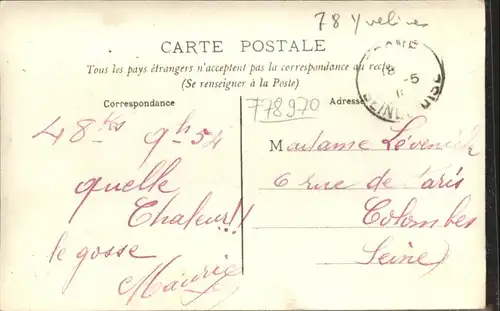 78 Yvelines
CARTE POSTALE
Tous les pays étrangers n'acceptent pas la correspondance au recto
(Se renseigner à la Poste)
Correspondance
778970
Adresse
48 Ks 9h54
quelle
Chaleur!!
le gosse
Maurice
Madame
6 rue de Paris
Colombes
(Seine)
18 -5